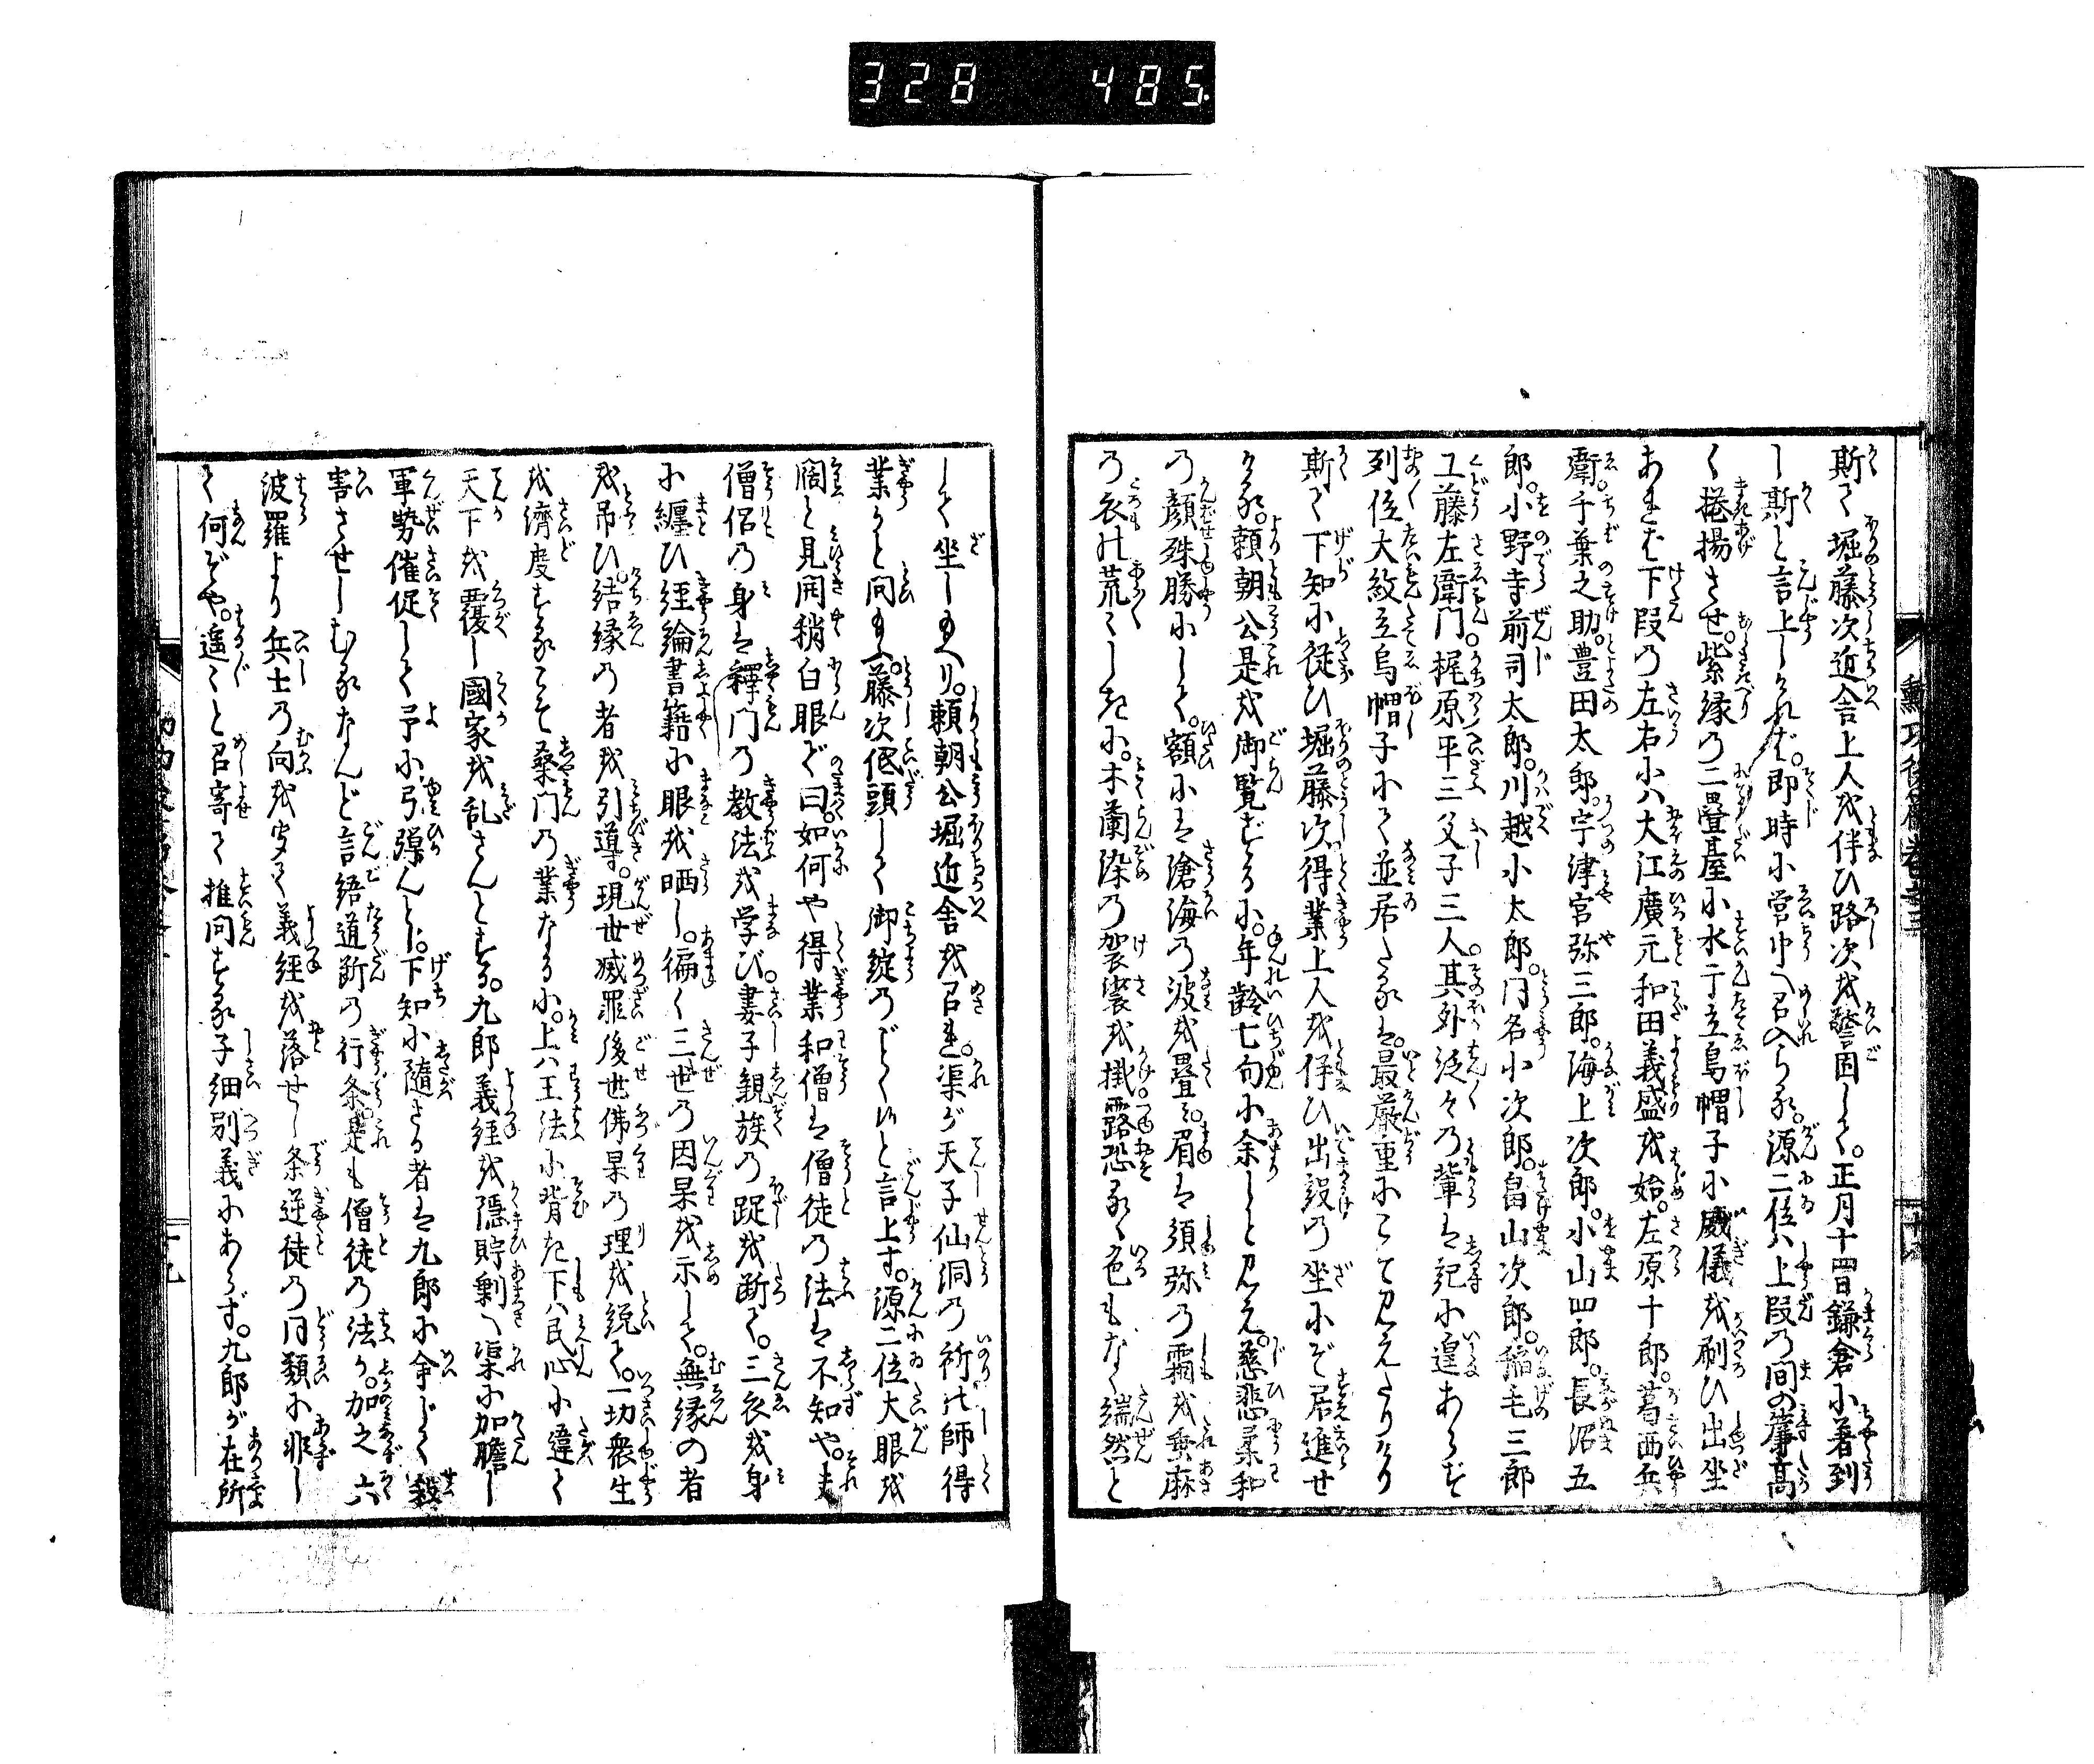 328 485
斯て堀藤次近舎上人を伴ひ路次を警固して。正月十四日鎌倉に着到
し斯と言上しければ。即時に営中へ召入らる。源二位ハ上段の間の簾高
く捲揚させ。紫縁の二畳臺に水干立烏帽子に威儀を刷ひ出坐
あれば下段の左右にハ大江廣元和田義盛を始。左原十郎。葛西兵
衛。千葉之助。豊田太郎。宇津宮弥三郎。海上次郎。小山四郎。長沼五
郎。小野寺前司太郎。川越小太郎。門名小次郎。畠山次郎。稲毛三郎
工藤左衛門。梶原平三父子三人。其外泛々の輩は記に遑あらず
列位大紋立烏帽子にて並居たるは。最厳重にこそ見えたりけり
斯て下知に従ひ堀藤次得業上人を伴ひ出設の坐にぞ居進せ
ける。頼朝公是を御覧ずるに。年齢七旬に余しと見え。慈悲柔和
の顔殊勝にして。額には滄海の波を畳み。眉は須弥の霜を垂麻
の衣の荒々しきに。木蘭染の袈裟を掛。露恐るゝ色もなく端然と
して坐しゐたり。頼朝公堀近舎を召れ。渠が天子仙洞の祈の師得
業かと問もふ。藤次低頭して御綻のごとく候と言上す。源二位大眼を
濶と見開稍白眼で曰。如何や得業和僧は僧徒の法は不知や。夫
僧侶の身は釋門の教法を学び。妻子親族の掟を断て。三衣を身
に纏ひ経論書籍に眼を晒し。徧く三世の因果を示して。無縁の者
を吊ひ。結縁の者を引導。現世滅罪後世佛果の理を説て。一切衆生
を濟度するこそ桑門の業なるに。上ハ王法に背き下ハ民心に違て
天下を覆し國家を乱さんとする。九郎義経を隠貯剰へ渠に加膽し
軍勢催促して予に弓彈んとし。下知に隨ざる者は九郎に命じて殺
害させしむるなんど言語道断の行条。是も僧徒の法か。加之六
波羅より兵士の向を安く義経を落せし条逆徒の同類に非し
て何ぞや。遥々と召寄て推問する子細別義にあらず。九郎が在所